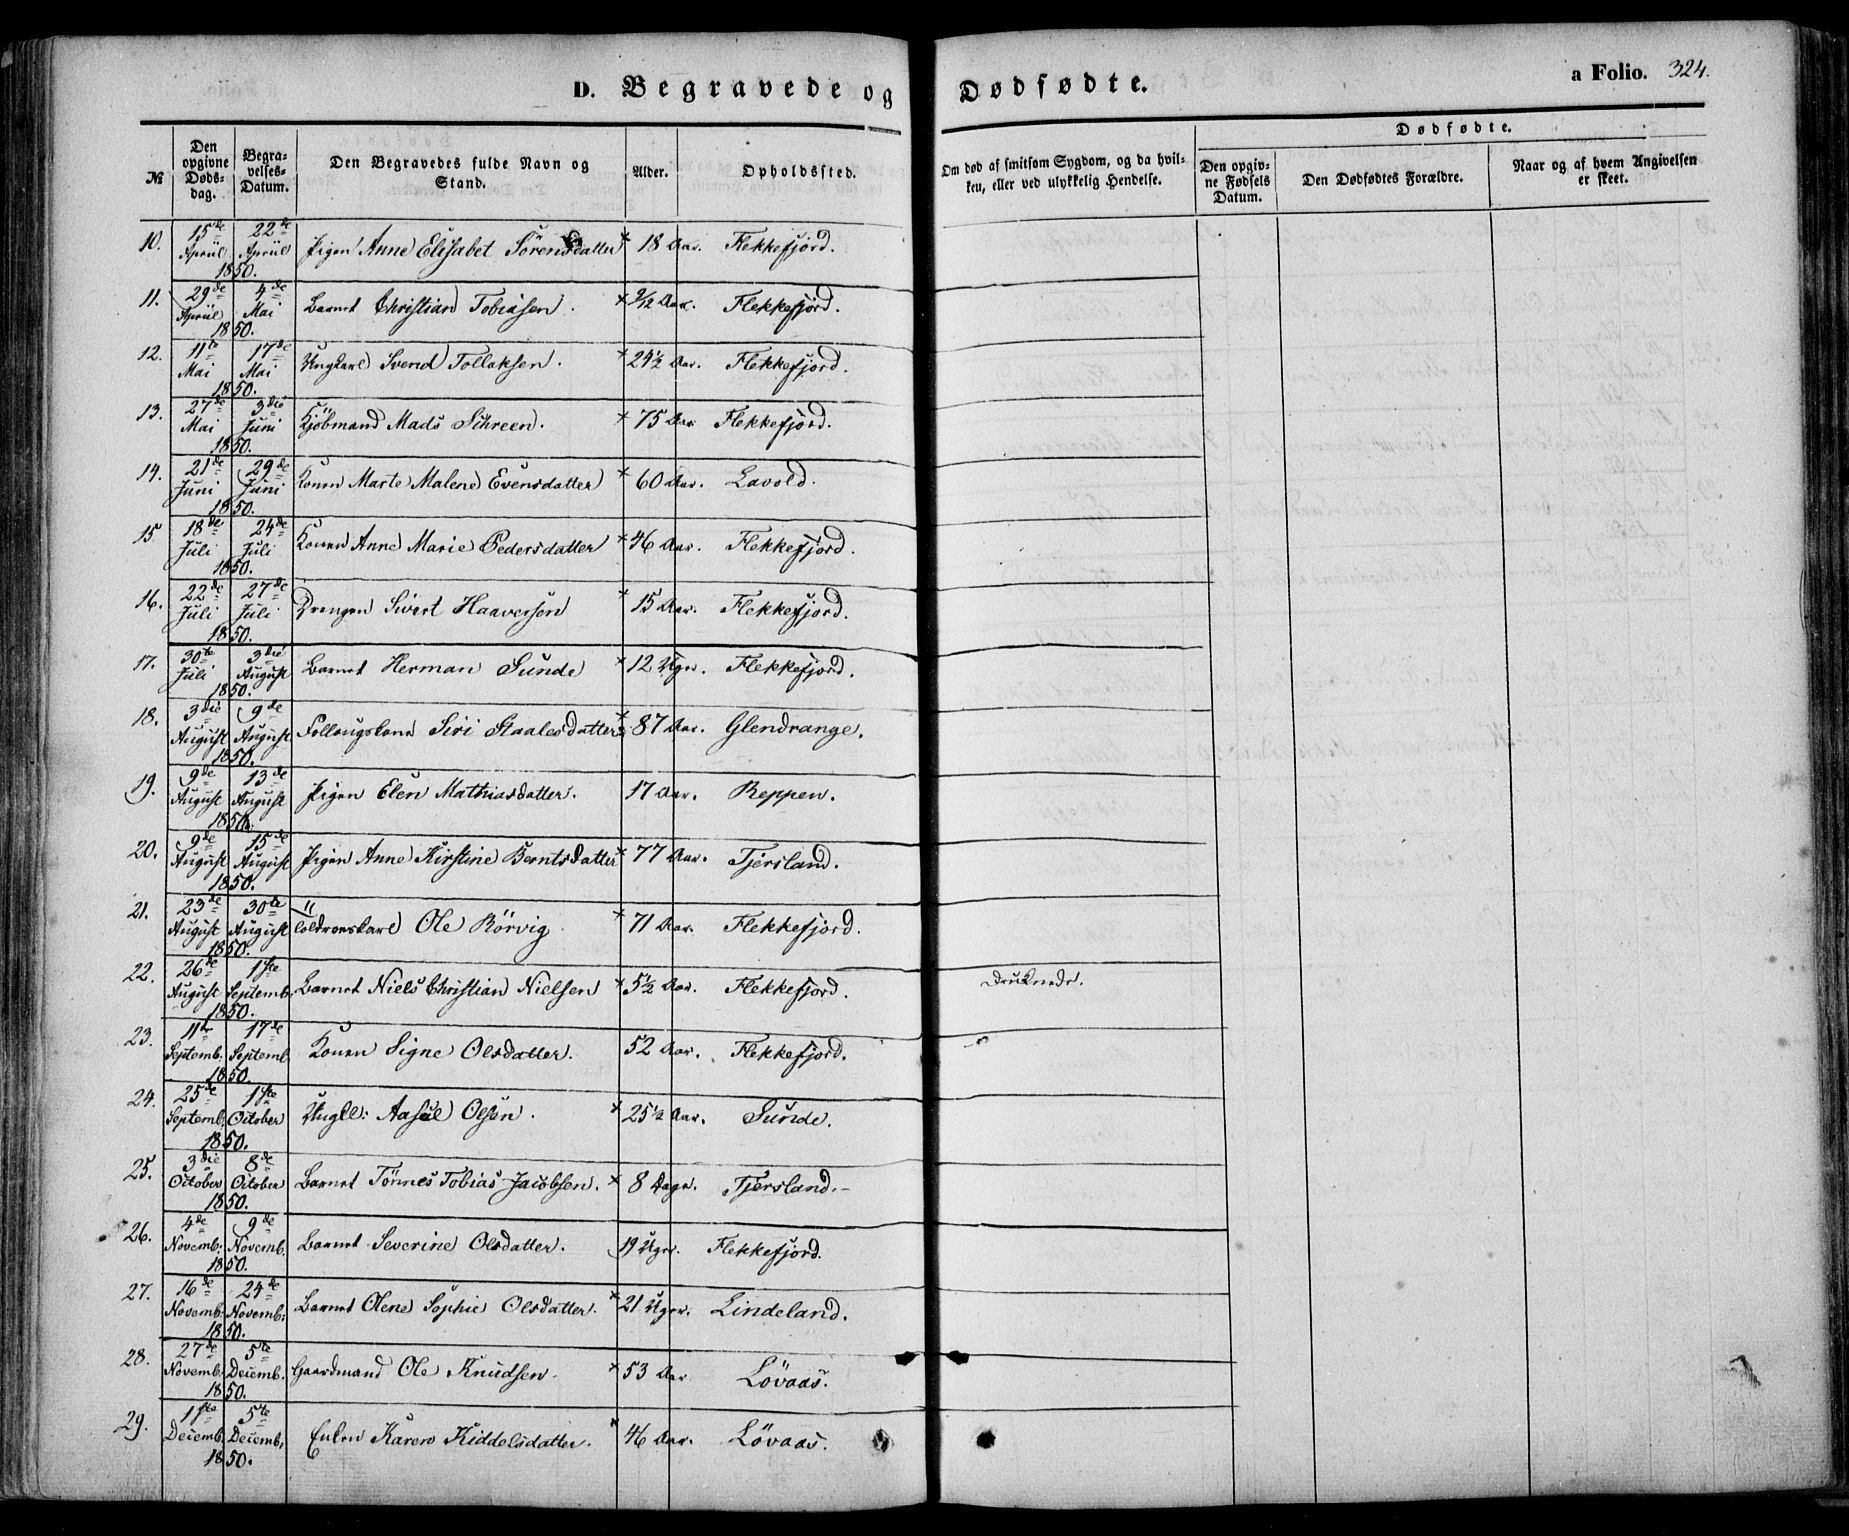 D. Begravede og Dødfødte. a Folio. 324.
№ Den opgivne Dødsdag. Begravelses-Datum. Den Begravedes fulde Navn og Stand. Alder. Opholdssted. Om død af smitsom Sygdom, og da hvilken, eller ved ulykkelig Hendelse. Dødfødte. Den opgivne Fødsels Datum. Den Dødfødtes Forældre. Naar og af hvem Angivelsen er skeet.
10. 15de April 22de April 1850. Pigen Anne Elisabet Sörensdatter × 18 Aar. Flekkefjord.
11. 29de April 4de Mai 1850. Barnet Christian Tobiasen. × 9/12 Aar. Flekkefjord.
12. 11te Mai 17de Mai 1850. Ungkarl Svend Tollaksen. × 24½ Aar. Flekkefjord.
13. 27de Mai 3die Juni 1850. Kjöbmand Mads Schreen. × 75 Aar Flekkefjord.
14. 21de Juni 29de Juni 1850. Konen Marte Malene Evensdatter × 60 Aar. Lavold.
15 18de Juli 24de Juli 1850. Konen Anne Marie Pedersdatter × 46 Aar. Flekkefjord.
16. 22de Juli 27de Juli 1850. Drengen Sivert Haaversen × 15 Aar. Flekkefjord.
17. 30te Juli 3die August 1850. Barnet Herman Sunde × 12 Uger. Flekkefjord.
18. 3die August 9de August 1850. Follaugskone Siri Staalesdatter × 87 Aar. Glendrange.
19. 9de August 13de August 1850. Pigen Elen Mathiasdatter. 17 Aar. Reppen.
20. 9de August 15de August 1850. Pigen Anne Kirstine Berntsdatter × 77 Aar. Tjersland.
21. 23de August 30te August 1850. Ole Rörvig × 71 Aar. Flekkefjord.
22. 26de August 1ste Septemb. 1850. Barnet Niels Christian Nielsen × 5½ Aar. Flekkefjord. Druknede.
23. 11te Septemb. 17de Septemb. 1850. Konen Signe Olsdatter. × 52 Aar. Flekkefjord.
24. 25de Septemb. 1ste October 1850. Ungk: Olsen. × 25½ Aar. Sunde.
25. 3die October 8de October 1850. Barnet Tönnes Tobias Jacobsen. × 8 Dage. Tjersland.
26. 4de Novemb: 9de Novemb. 1850. Barnet Severine Olsdatter. 19 Uger. Flekkefjord.
27. 16de Novemb: 24de Novemb: 1850. Barnet Olene Sophie Olsdatter. × 21 Uger. Lindeland.
28. 27de Novemb. 5te Decemb. 1850. Gaardmand Ole Knudsen. × 53 Aar Lövaas.
29. 1ste Decemb. 5te Decemb. 1850. Enken Karen Kiddelsdatter. × 46 Aar. Lövaas.